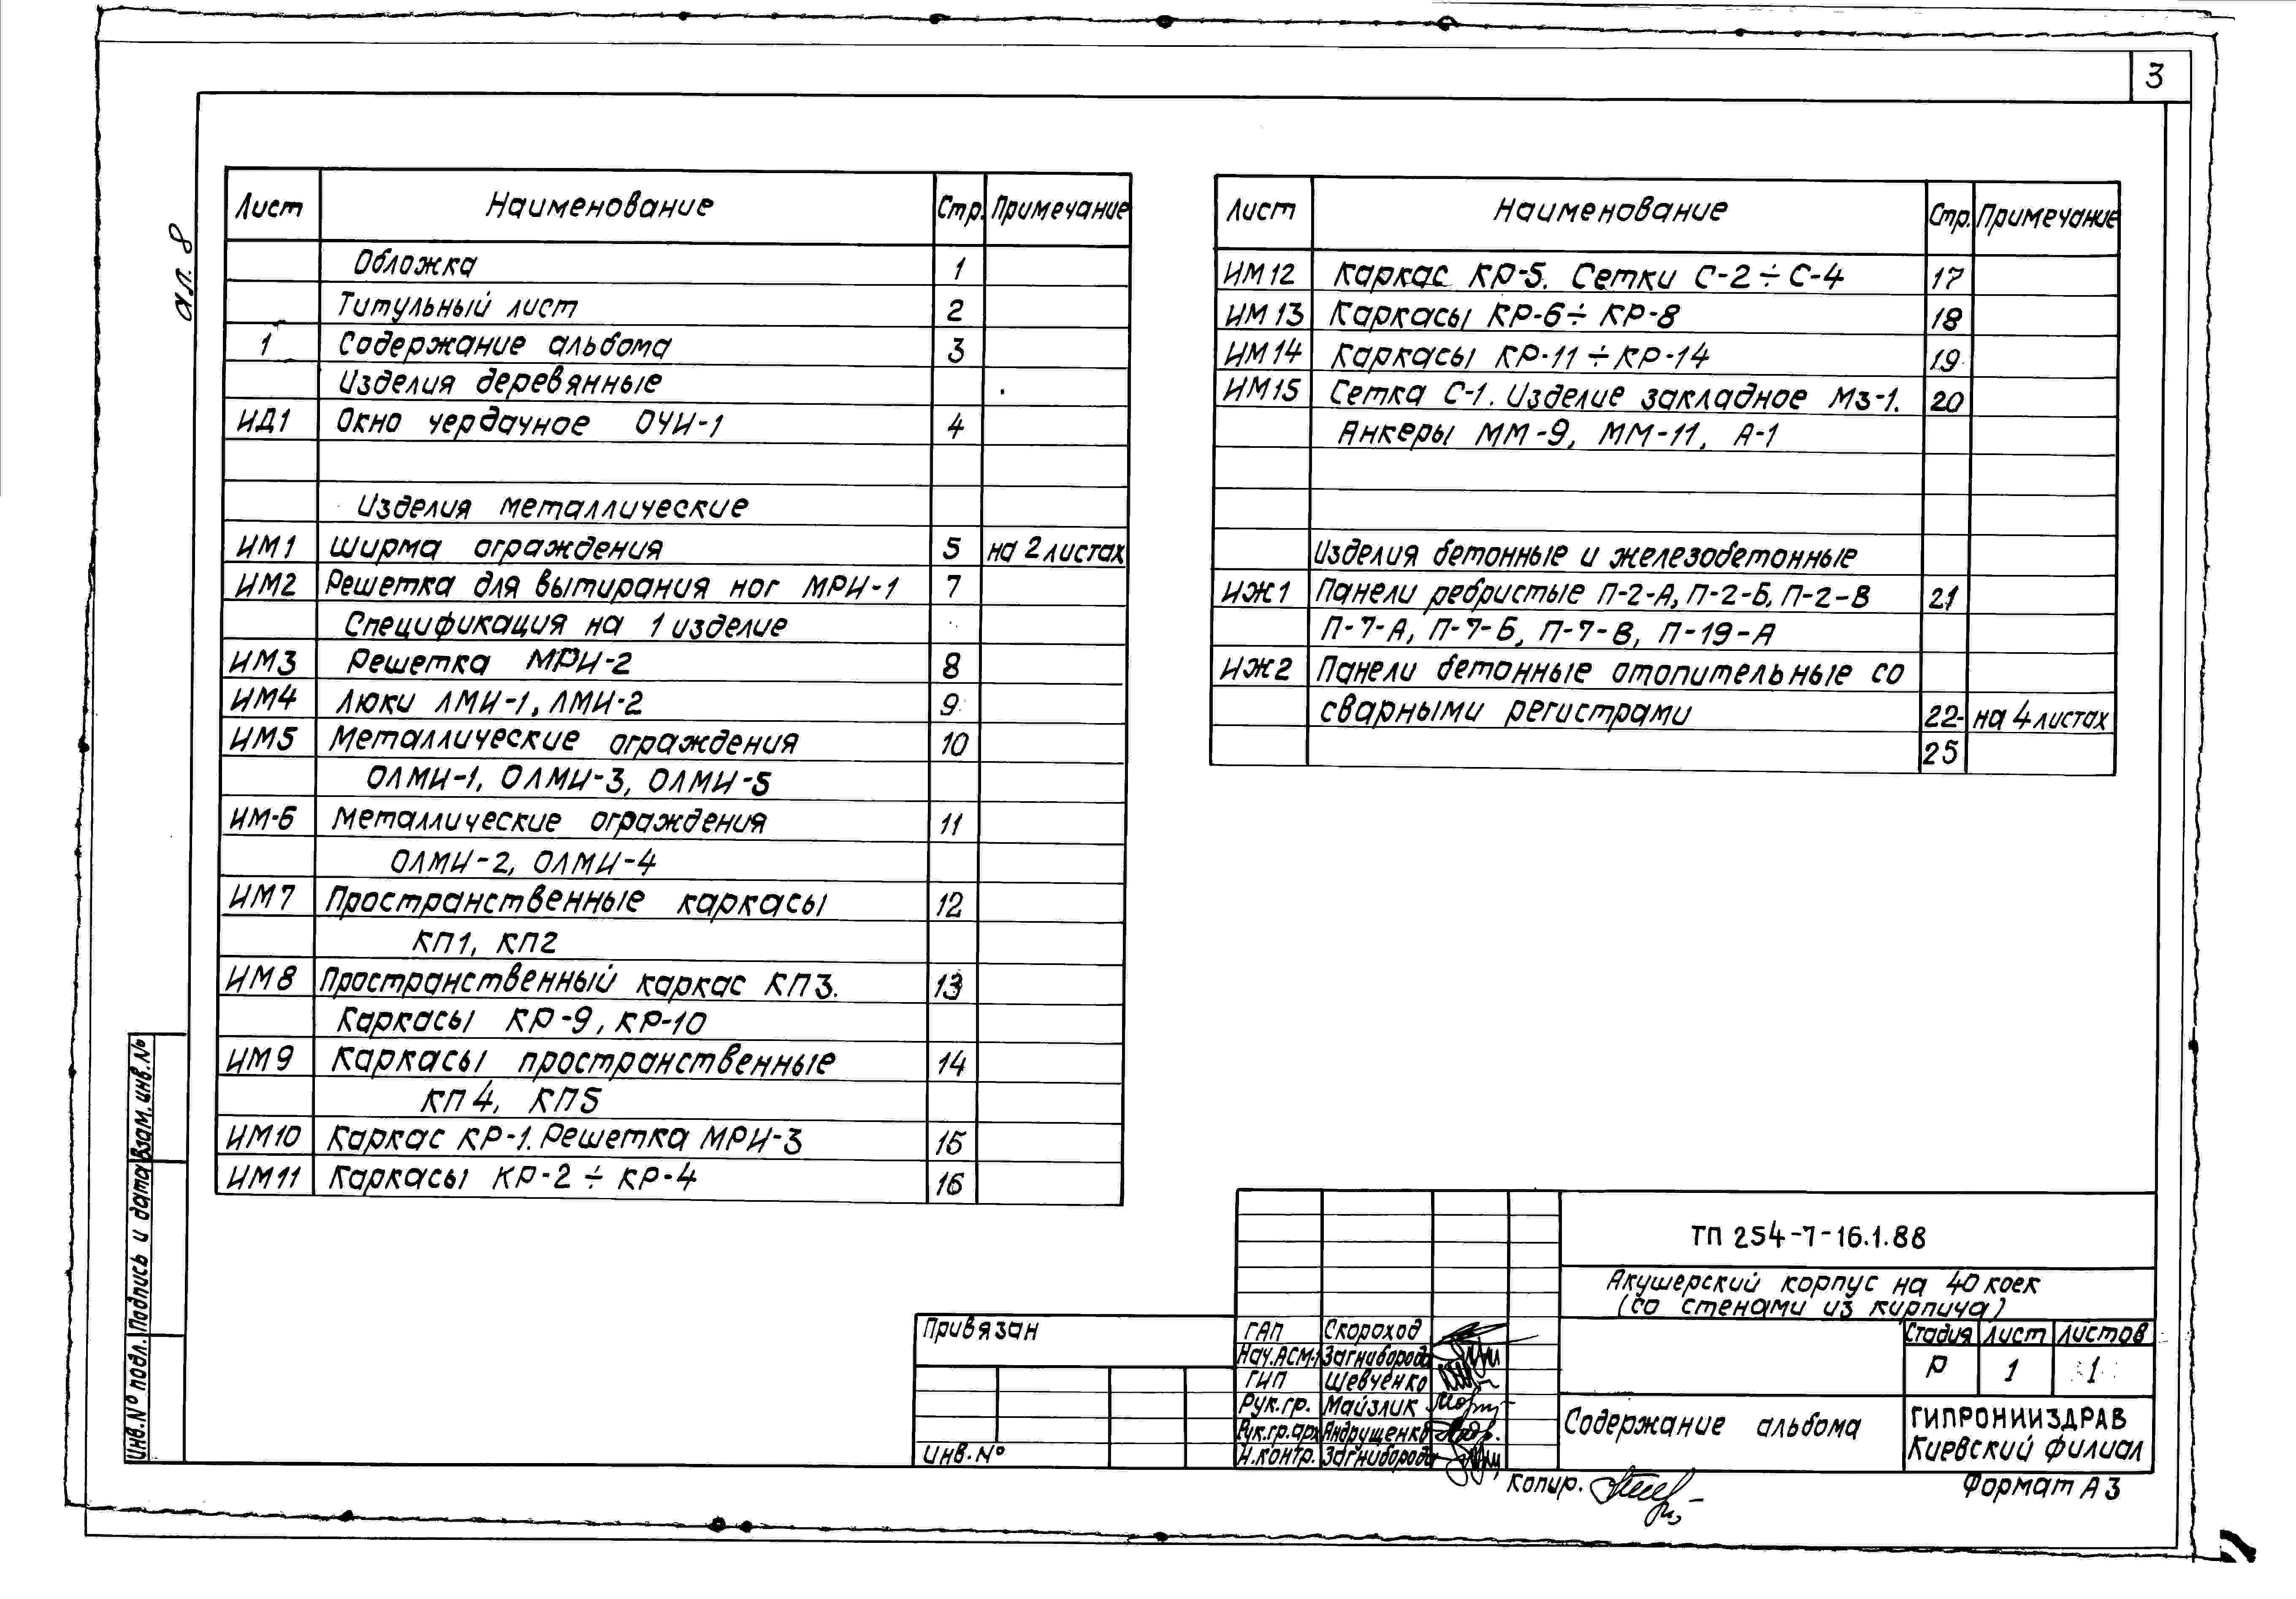 3
ал. 8
Лист Наименование Стр. Примечание
Обложка 1
Титульный лист 2
1 Содержание альбома 3
Изделия деревянные
ИД1 Окно чердачное ОЧИ-1 4
Изделия металлические
ИМ1 Ширма ограждения 5 на 2 листах
ИМ2 Решетка для вытирания ног МРИ-1 7
Спецификация на 1 изделие
ИМ3 Решетка МРИ-2 8
ИМ4 Люки ЛМИ-1, ЛМИ-2 9
ИМ5 Металлические ограждения 10
ОЛМИ-1, ОЛМИ-3, ОЛМИ-5
ИМ-6 Металлические ограждения 11
ОЛМИ-2, ОЛМИ-4
ИМ7 Пространственные каркасы 12
КП1, КП2
ИМ8 Пространственный каркас КП3. 13
Каркасы КР-9, КР-10
ИМ9 Каркасы пространственные 14
КП4, КП5
ИМ10 Каркас КР-1. Решетка МРИ-3 15
ИМ11 Каркасы КР-2 ÷ КР-4 16
Лист Наименование Стр. Примечание
ИМ12 Каркас КР-5. Сетки С-2 ÷ С-4 17
ИМ13 Каркасы КР-6 ÷ КР-8 18
ИМ14 Каркасы КР-11 ÷ КР-14 19
ИМ15 Сетка С-1. Изделие закладное МЗ-1. 20
Анкеры ММ-9, ММ-11, А-1
Изделия бетонные и железобетонные
ИЖ1 Панели ребристые П-2-А, П-2-Б, П-2-В 21
П-7-А, П-7-Б, П-7-В, П-19-А
ИЖ2 Панели бетонные отопительные со
сварными регистрами 22- на 4 листах
25
Взам. инв. №
Подпись и дата
Инв. № подл.
ТП 254-7-16.1.88
Акушерский корпус на 40 коек
(со стенами из кирпича)
Привязан
Инв. №
ГАП Скороход
Нач. АСМ-1 Загниборода
ГИП Шевченко
Рук. гр. Майзлик
Рук. гр. арх Андрущенко
Н. контр. Загниборода
Стадия Лист Листов
Р 1 1
Содержание альбома
ГИПРОНИИЗДРАВ
Киевский филиал
Копир.
Формат А3